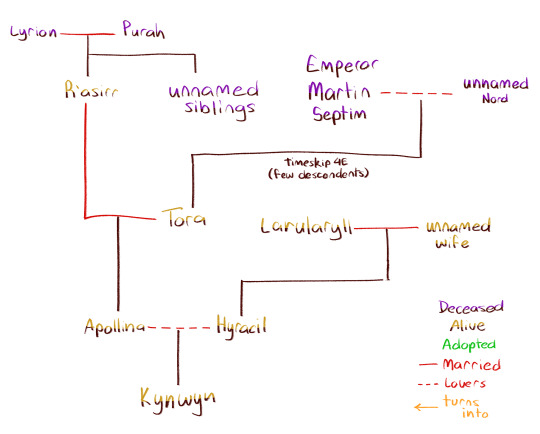 Lyrion
Purah
R'asirr
unnamed
siblings
Emperor
Martin
Septim
unnamed
Nord
timeskip 4E
(few descendents)
Tora
Larularyll
unnamed
wife
Apollina
Hyracil
Kynwyn
Deceased
Alive
Adopted
Married
Lovers
turns
into